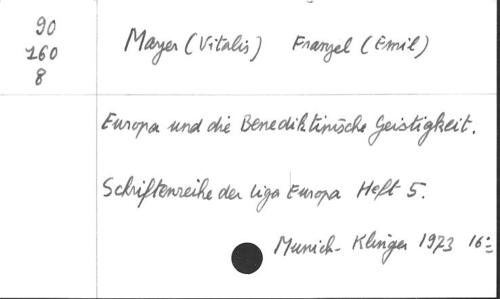 90
160
8
Mayer (Vitalis) Franzel (Emil)
Europa und die Benediktinische Geistigkeit.
Schriftenreihe der Liga Europa Heft 5.
Munich - Klinger 1973 16=